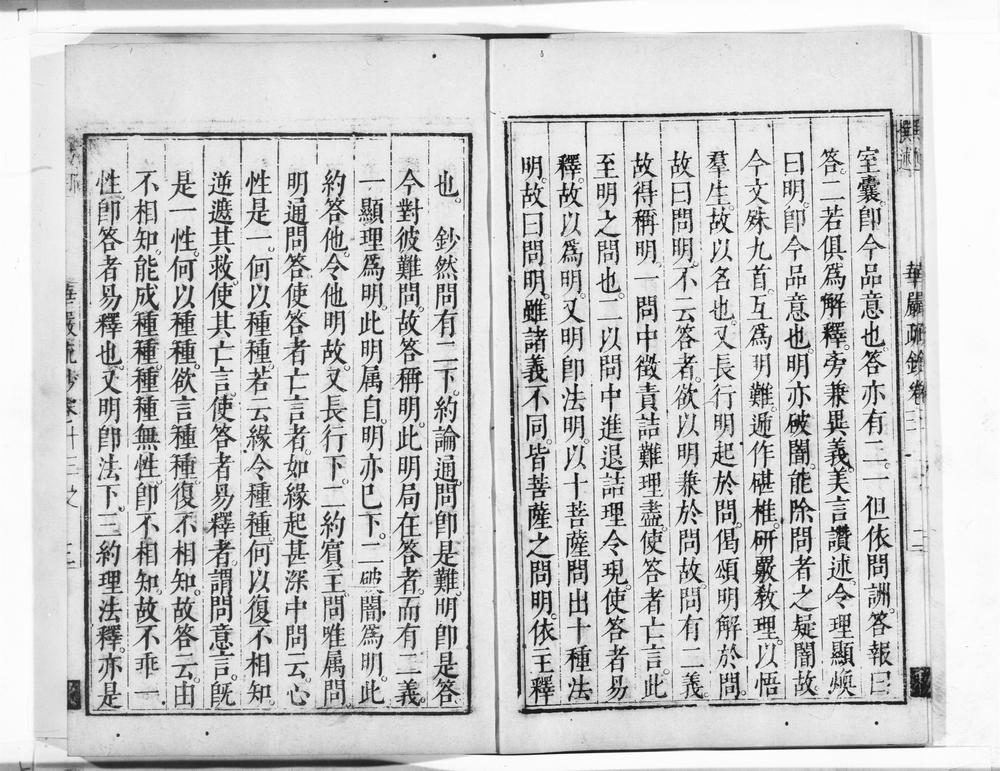 室囊。卽今品意也。答亦有二。一但依問詶。答報曰
答。二若俱爲解釋。旁兼異義。美言讚述。令理顯煥
曰明。卽今品意也。明亦破闇。能除問者之疑闇故
今文殊九首。互爲明難。遞作碪椎。研覈敎理。以悟
羣生。故以名也。又長行明起於問。偈頌明解於問。
故曰問明。不云答者。欲以明兼於問故。問有二義
故得稱明。一問中徵責詰難理盡。使答者亡言。此
至明之問也。二以問中進退詰理令現。使答者易
釋。故以爲明。又明卽法明。以十菩薩問出十種法
明。故曰問明。雖諸義不同。皆菩薩之問明。依主釋
也。　鈔然問有二下。約論通問卽是難。明卽是答
今對彼難問。故答稱明。此明局在答者。而有二義。
一顯理爲明。此明属自。明亦巳下。二破闇爲明。此
約答他。令他明故。又長行下。二約賓王。問唯属問。
明通問答。使答者亡言者。如緣起甚深中問云。心
性是一。何以種種。若云緣令種種。何以復不相知。
逆遮其救。使其亡言。使答者易釋者。謂問意言。旣
是一性。何以種種。欲言種種。復不相知。故答云。由
不相知。能成種種。種種無性。卽不相知。故不乖一
性。卽答者易釋也。又明卽法下。三約理法釋。亦是
華嚴疏鈔卷
撰述